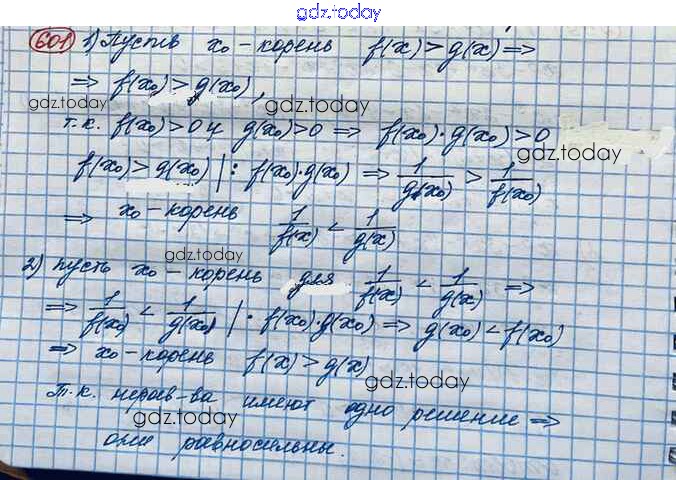 gdz.today
601 1) Пусть x₀ - корень f(x) > g(x) ⇒
⇒ f(x₀) > g(x₀),
gdz.today gdz.today
т.к. f(x₀) > 0 и g(x₀) > 0 ⇒ f(x₀)·g(x₀) > 0
gdz.today
f(x₀) > g(x₀) | : f(x₀)·g(x₀) ⇒ 1/g(x₀) > 1/f(x₀)
⇒ x₀ - корень 1/f(x) < 1/g(x)
gdz.today
2) пусть x₀ - корень для 1/f(x) < 1/g(x) ⇒
⇒ 1/f(x₀) < 1/g(x₀) | · f(x₀)·g(x₀) ⇒ g(x₀) < f(x₀)
⇒ x₀ - корень f(x) > g(x)
gdz.today
Т.к. нерав-ва имеют одно решение ⇒
gdz.today
они равносильны.